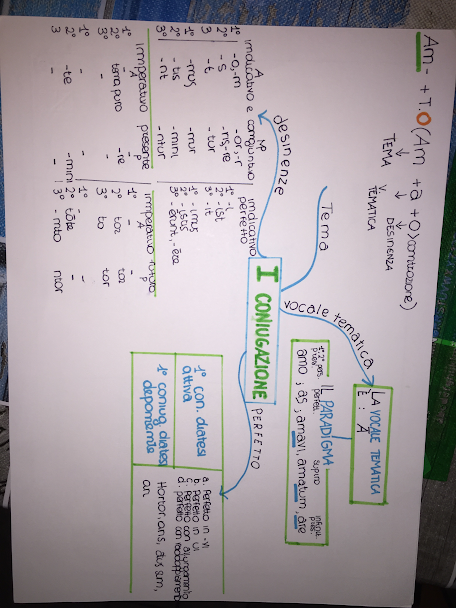 Am- + T.O (Am + a + o)
TEMA V. TEMATICA DESINENZA
Tema
vocale tematica
LA VOCALE TEMATICA
È : A
IL PARADIGMA
1° 2° pers. perfett. supino
amo ; as, amavi, amatum, are
I CONIUGAZIONE
PERFETTO
1° con. diatesi
attiva
a. Perfetto in -vi
b. Perfetto in ui
c. Perfetto con allungamento
1° coniug. diatesi
deponente
Hortor, aris,
desinenze
A MP
indicativo e congiuntivo
1° -o, -m -or, -r
2° -s -ris, -re
3 -t -tur
1° -mus -mur
2° -tis -mini
3° -nt -ntur
indicativo
perfetto
1° -i
2° -isti
3° -it
1° -imus
2° -istis
3° -erunt, -ere
imperativo presente
A P
1° - -
2° -re
3° - -
1° - -
2° -te -mini
3 - -
imperativo futuro
A P
1° - -
2° to2 to2
3° to tor
1° - -
2° tote -
3° -nto ntor